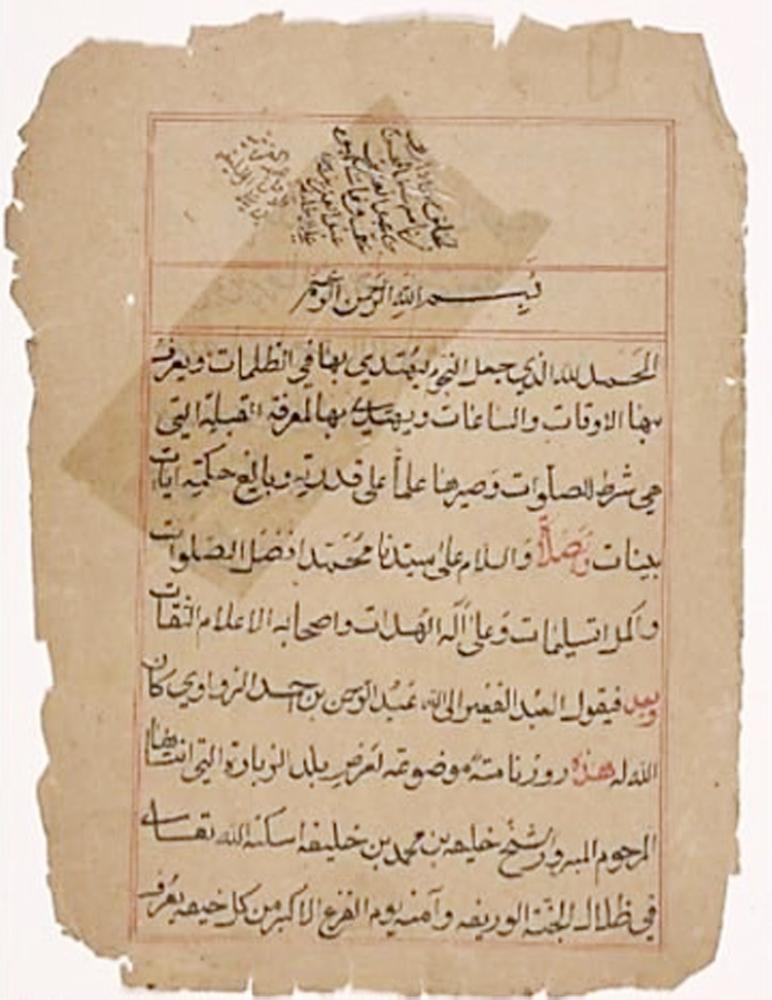 بسم الله الرحمن الرحيم
الحمد لله الذي جعل النجوم ليهتدي بها في الظلمات ويعرف
بها الاوقات والساعات ويهتدي بها لمعرفة القبلة التي
هي شرط للصلوات وصيرها علماً على قدرته وبالغ حكمته ايات
بينات وصلاة والسلام على سيدنا محمد افضل الصلوات
واكمل التسليمات وعلى آله الهدات واصحابه الاعلام الثقات
وبعد فيقول العبد الفقير الى الله عبد الرحمن بن احمد الزواوي كان
الله له هذه روزنامة موضوعه لعرض بلد الزبارة التي انشاها
المرحوم المبرور الشيخ خليفه بن محمد بن خليفه اسكنه الله تعالى
في ظلال الجنة الوريفه وآمنه يوم الفزع الاكبر من كل خيفه يعرف